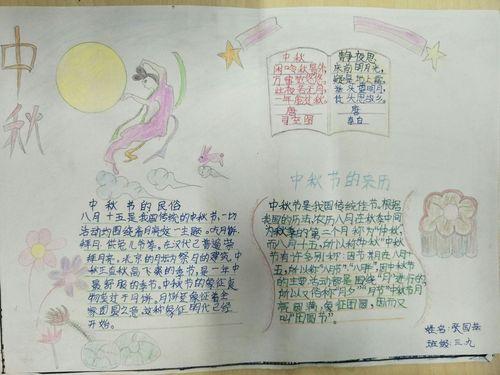 中
秋
中秋
闲吟秋景外,
万事觉悠悠。
此夜若无月,
一年虚过秋。
唐
司空图
静夜思
床前明月光,
疑是地上霜。
举头望明月,
低头思故乡。
唐
李白
中秋节的民俗
八月十五是我国传统的中秋节,一切
活动约围绕着月亮这一主题。
拜月、供兔儿爷等。在汉代之普遍带
拜月亮,北京的月坛为祭月的建筑。中
秋三五秋高飞爽的季节,是一年中
最舒服的季节。中秋节的象征
物莫过于月饼。月饼是象征着全
家团圆之意,这种象征明代已经
开始。
中秋节的来历
中秋节是我国传统佳节。根据
我国的历法,农历八月在秋季中间
为秋季的第二个月称为“仲秋”,
而八月十五,所以称“中秋”中秋
节有许多别称:因节期在八月十
五,所以称“八月节”、“八月半”;因中秋节
的主要活动都是围绕“月”进行的,
所以又俗称“月夕”“月节”中秋节月
亮圆满,象征团圆,因而又
叫“团圆节”。
姓名:
班级:三、九